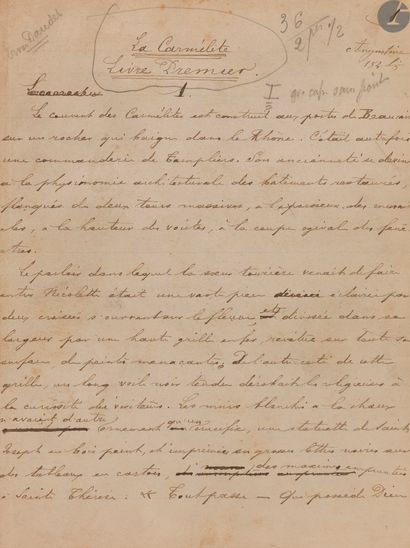 Ernest Daudet
La Carmélite
Livre Premier.
36
2 per 1/2
1
Augustine
I
gr. cap. sans point
1.
Le couvent des Carmélites est construit aux portes de Beaucaire
sur un rocher qui baigne dans le Rhône. C'était autrefois
une commanderie de Templiers. Son ancienneté se devine
à la physionomie architecturale des bâtiments restaurés,
flanqués de deux tours massives, à l'épaisseur des murailles,
à la hauteur des voûtes, à la coupe ogivale des fenêtres.
Le parloir dans lequel la sœur tourière venait de faire
entrer Nicolette était une vaste pièce éclairée par
deux croisées s'ouvrant sur le fleuve et divisée dans sa
largeur par une haute grille en fer, revêtue sur toute sa
surface de pointes menaçantes. De l'autre côté de cette
grille, un long voile noir tendu dérobait les religieuses à
la curiosité des visiteurs. Les murs blanchis à la chaux
n'avaient d'autre
ornement qu'un crucifix, une statuette de Saint
Joseph en bois peint, et imprimées en grosses lettres noires sur
des tableaux en carton, des maximes empruntées
à Sainte Thérèse : Tout passe — Qui possède Dieu